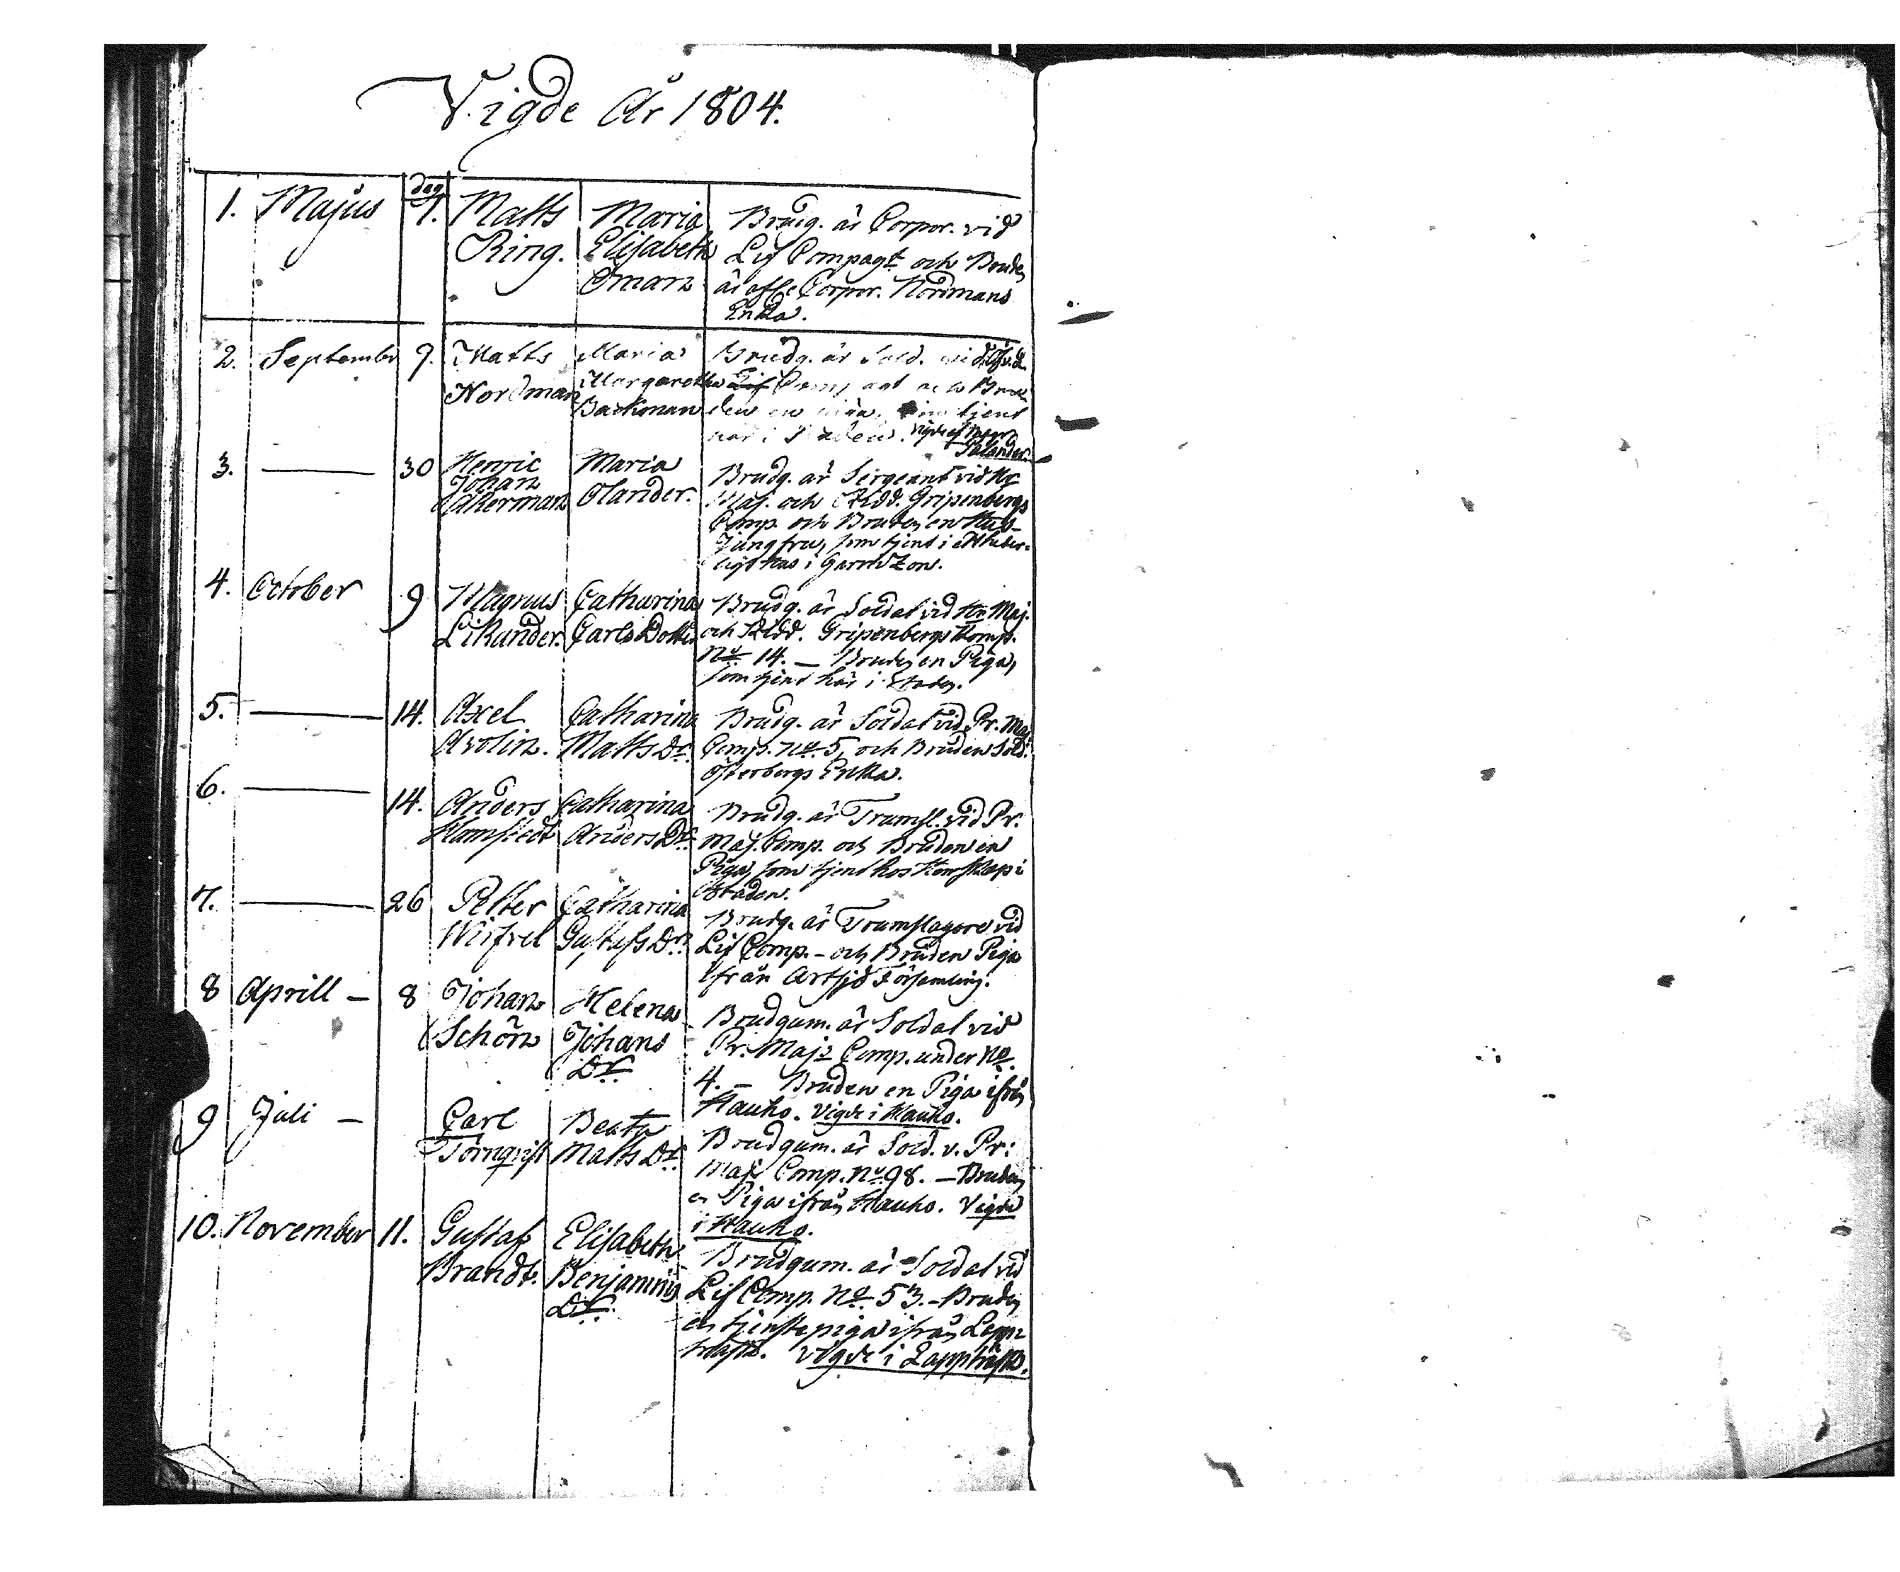 Vigde År 1804.
dag
1. Majus 1. Matts Maria Brudg. är Corpor. vid
Ring. Elisabeth Lif Compagt och Bruden
Öman är Corpor. Nordmans
Enka.
2. September 9. Matts Maria Brudg. är Sold. vid
Nordman Margaretha Lif Comp
Backman den en tjent
här i Staden. Vigde af
Salander.
3. — 30 Henric Maria Brudg. är Sergeant vid Hr
Johan Olander. Maj. och Ridd. Gripenbergs
Åkerman Comp och Bruden en
Jungfru, som tjent i
hus i Garnizon.
4. October 9 Magnus Catharina Brudg. är Soldat vid Hr Maj.
Likander. Carls Dotter och Ridd. Gripenbergs Komp.
No. 14. — Bruden en Piga,
som tjent här i Staden.
5. — 14. Axel Catharina Brudg. är Soldat vid Pr. Maj
Arolin. Matts Dr. Comp. No. 5, och Bruden Sold.
Österbergs Enka.
6. — 14. Anders Catharina Brudg. är Trumsl. vid Pr.
Hamstedt Anders Dr. Maj. Comp. och Bruden en
Piga, som tjent hos Herrskap i
Staden.
7. — 26 Petter Catharina Brudg. är Trumslagare vid
Wirfvel Gustafs Dr. Lif Comp. - och Bruden Piga
ifrån Artsjö Församling.
8 Aprill — 8 Johan Helena Brudgum. är Soldat vid
Schön Johans Pr. Majs Comp. under No.
Dr. 4. — Bruden en Piga ifrån
Hauho. Vigde i Hauho.
9 Juli — Carl Beata Brudgum. är Sold. v. Pr:
Törnqvist Matts Dr. Majs Comp. No 98. — Bruden
en Piga ifrån Hauho. Vigde
i Hauho.
10. November 11. Gustaf Elisabeth Brudgum. är Soldat vid
Brandt. Benjamins Lif Comp. No. 53. - Bruden
Dr. en tjenstepiga ifrån Lapp=
träsk. Vigde i Lappträsk.